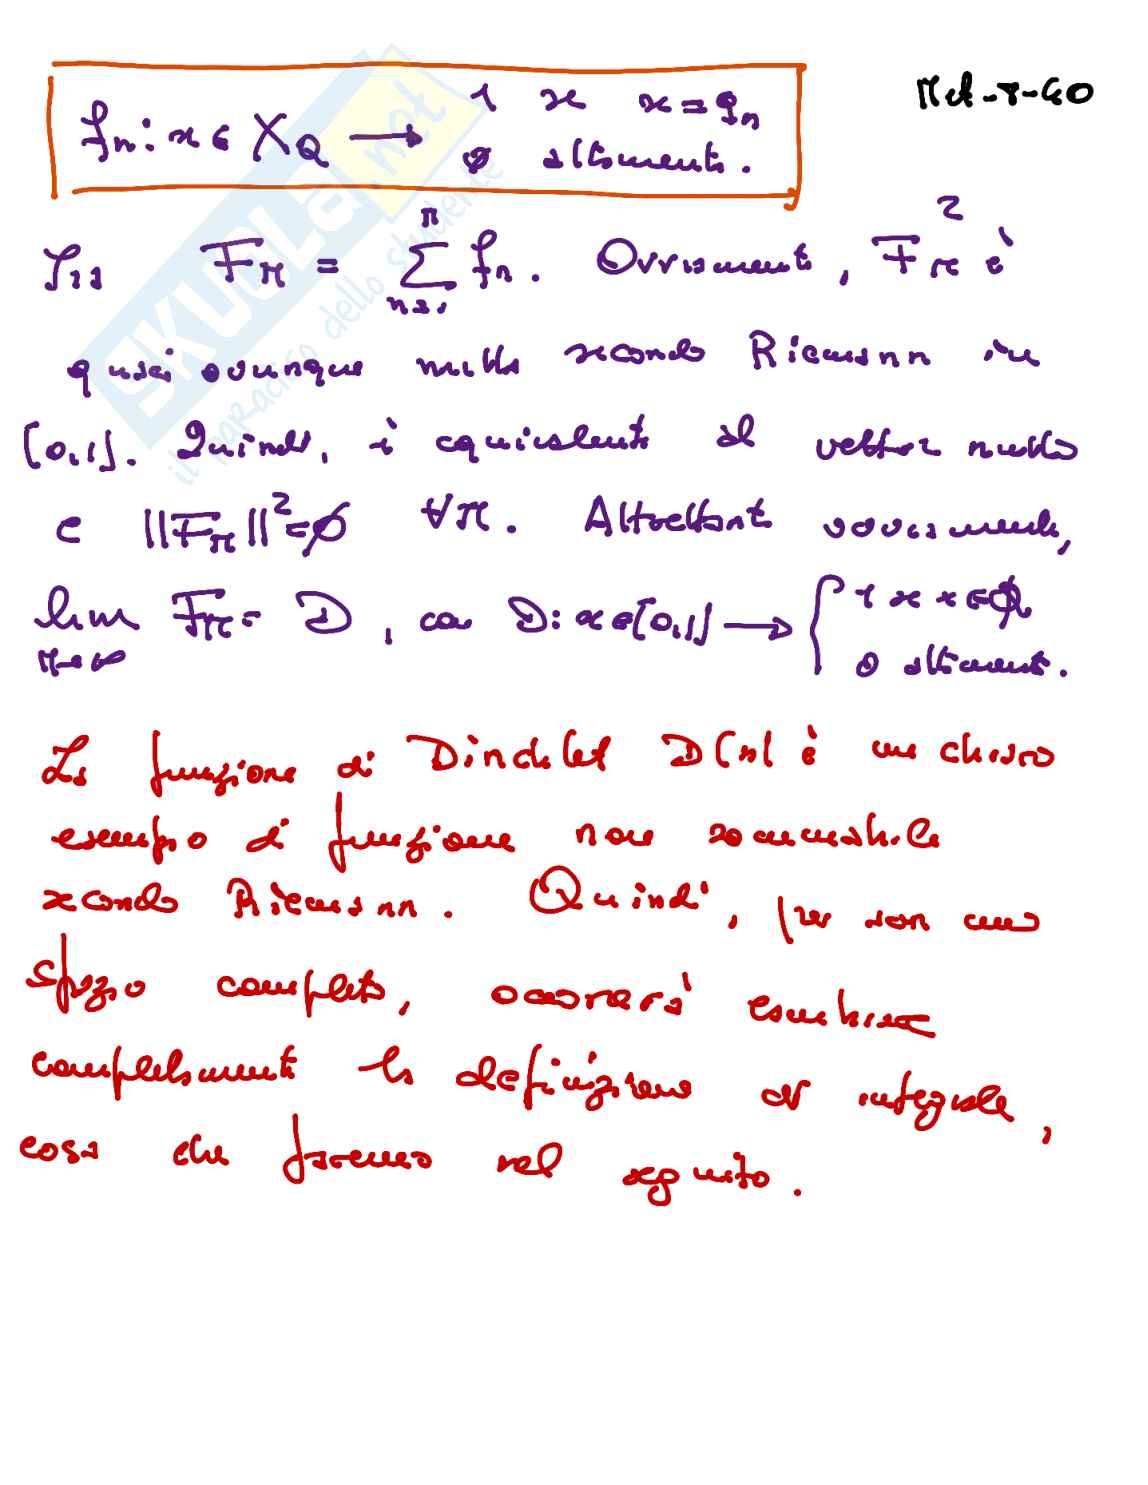 1 se x = qₙ
fₙ: x ∈ X_Q → 0 altrimenti.
Sia F_M = ∑ₙ₌₁ᴹ fₙ. Ovviamente, F_M² è
quasi ovunque nulla secondo Riemann in
[0,1]. Quindi, è equivalente al vettore nullo
e ||F_M||² = 0 ∀M. Altrettanto ovviamente,
lim_{M→∞} F_M = D, con D: x ∈ [0,1] → { 1 se x ∈ Q
0 altrimenti.
La funzione di Dirichlet D(x) è un chiaro
esempio di funzione non sommabile
secondo Riemann. Quindi, per avere uno
spazio completo, occorrerà cambiare
completamente la definizione di integrale,
cosa che faremo nel seguito.
SKUOLA.net
il paradiso dello studente